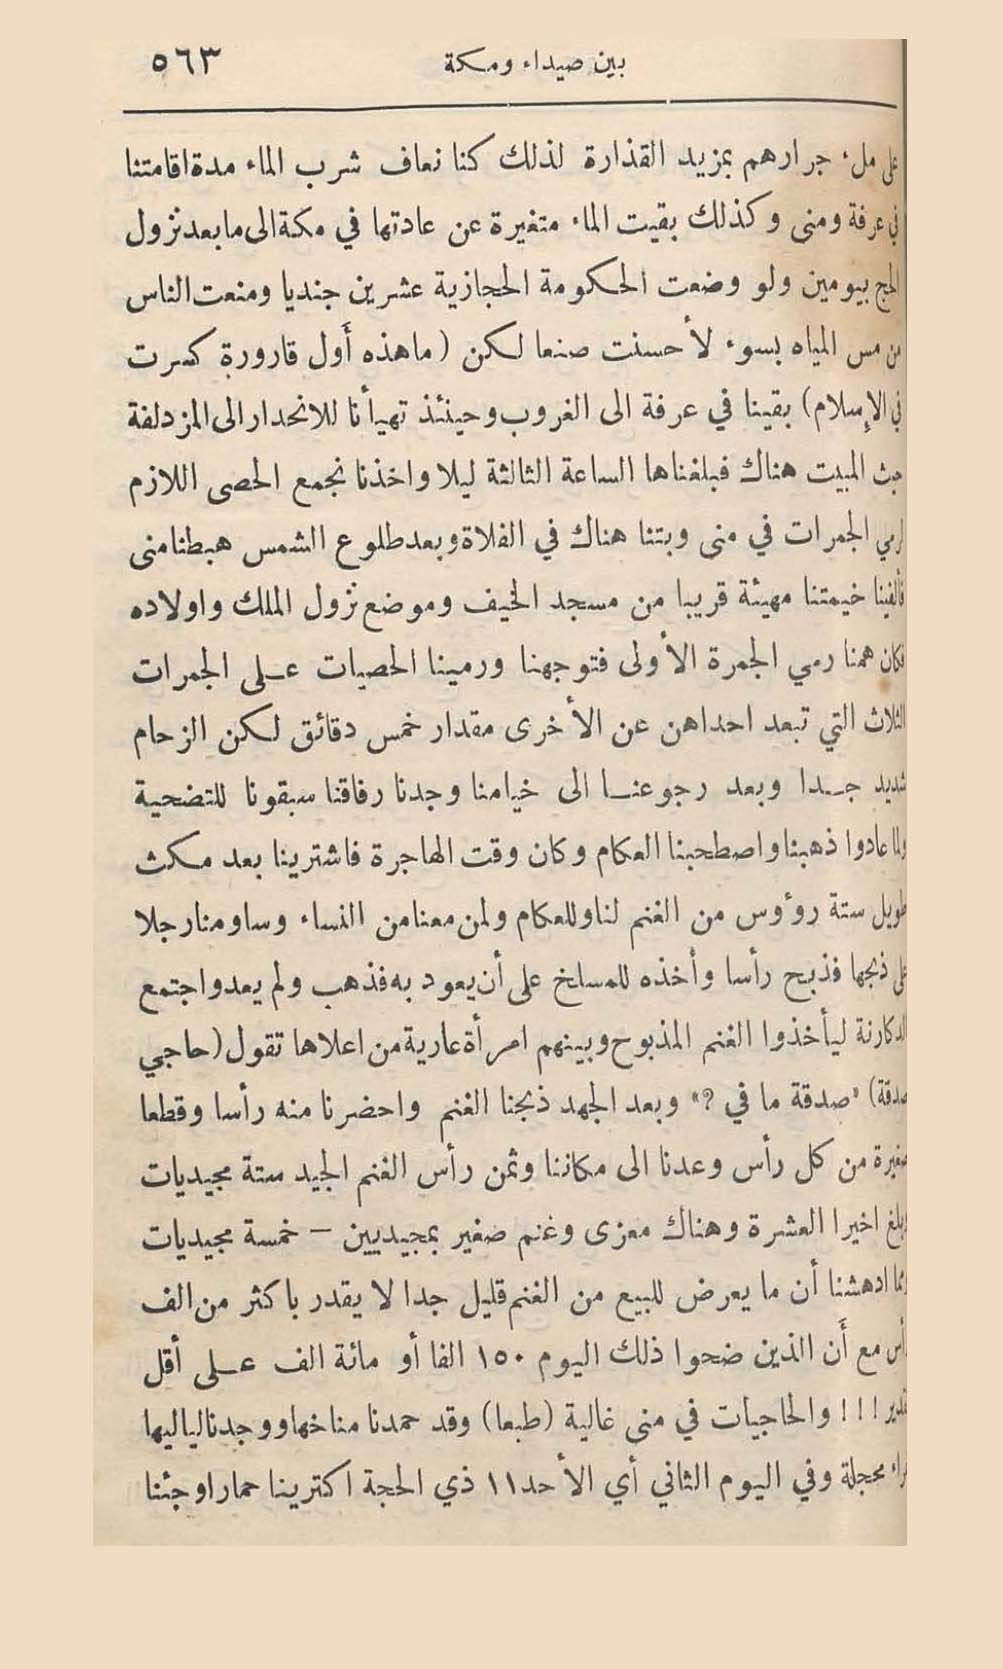 بين صيداء ومكة ٥٦٣
على ملء جرارهم بمزيد القذارة لذلك كنا نعاف شرب الماء مدة اقامتنا
في عرفة ومنى وكذلك بقيت الماء متغيرة عن عادتها في مكة الى ما بعد نزول
الحج بيومين ولو وضعت الحكومة الحجازية عشرين جنديا ومنعت الناس
من مس المياه بسوء لأحسنت صنعا لكن (ما هذه أول قارورة كسرت
في الإسلام) بقينا في عرفة الى الغروب وحينئذ تهيأنا للانحدار الى المزدلفة
حيث المبيت هناك فبلغناها الساعة الثالثة ليلا واخذنا نجمع الحصى اللازم
لرمي الجمرات في منى وبتنا هناك في الفلاة وبعد طلوع الشمس هبطنا منى
فألفينا خيمتنا مهيئة قريبا من مسجد الخيف وموضع نزول الملك واولاده
فكان همنا رمي الجمرة الأولى فتوجهنا ورمينا الحصيات عـلى الجمرات
الثلاث التي تبعد احداهن عن الأخرى مقدار خمس دقائق لكن الزحام
شديد جـدا وبعد رجوعنـا الى خيامنا وجدنا رفاقنا سبقونا للتضحية
ولما عادوا ذهبنا واصطحبنا العكام وكان وقت الهاجرة فاشترينا بعد مكث
طويل ستة روءوس من الغنم لنا وللعكام ولمن معنا من النساء وساومنا رجلا
على ذبحها فذبح رأسا وأخذه للمسلخ على أن يعود به فذهب ولم يعد واجتمع
الدكارنة ليأخذوا الغنم المذبوح وبينهم امرأة عارية من اعلاها تقول (حاجي
صدقة) «صدقة ما في ?» وبعد الجهد ذبحنا الغنم واحضرنا منه رأسا وقطعا
صغيرة من كل رأس وعدنا الى مكاننا وثمن رأس الغنم الجيد ستة مجيديات
وبلغ اخيرا العشرة وهناك معزى وغنم صغير بمجيديين – خمسة مجيديات
ومما ادهشنا أن ما يعرض للبيع من الغنم قليل جدا لا يقدر باكثر من الف
رأس مع أن الذين ضحوا ذلك اليوم ١٥٠ الفا أو مائة الف عـلى أقل
تقدير ! ! ! والحاجيات في منى غالية (طبعا) وقد حمدنا مناخها ووجدنا لياليها
محجلة وفي اليوم الثاني أي الأحد ١١ ذي الحجة اكترينا حمارا وجئنا